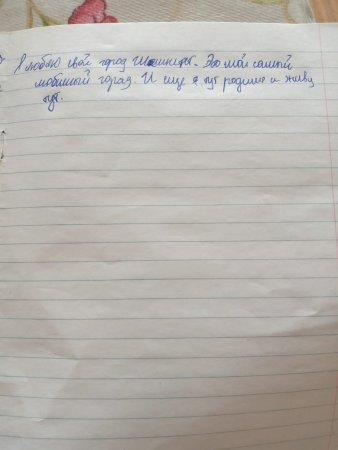 Я люблю свой город. Это мой самый
любимый город. И еще я тут родился и живу
тут.